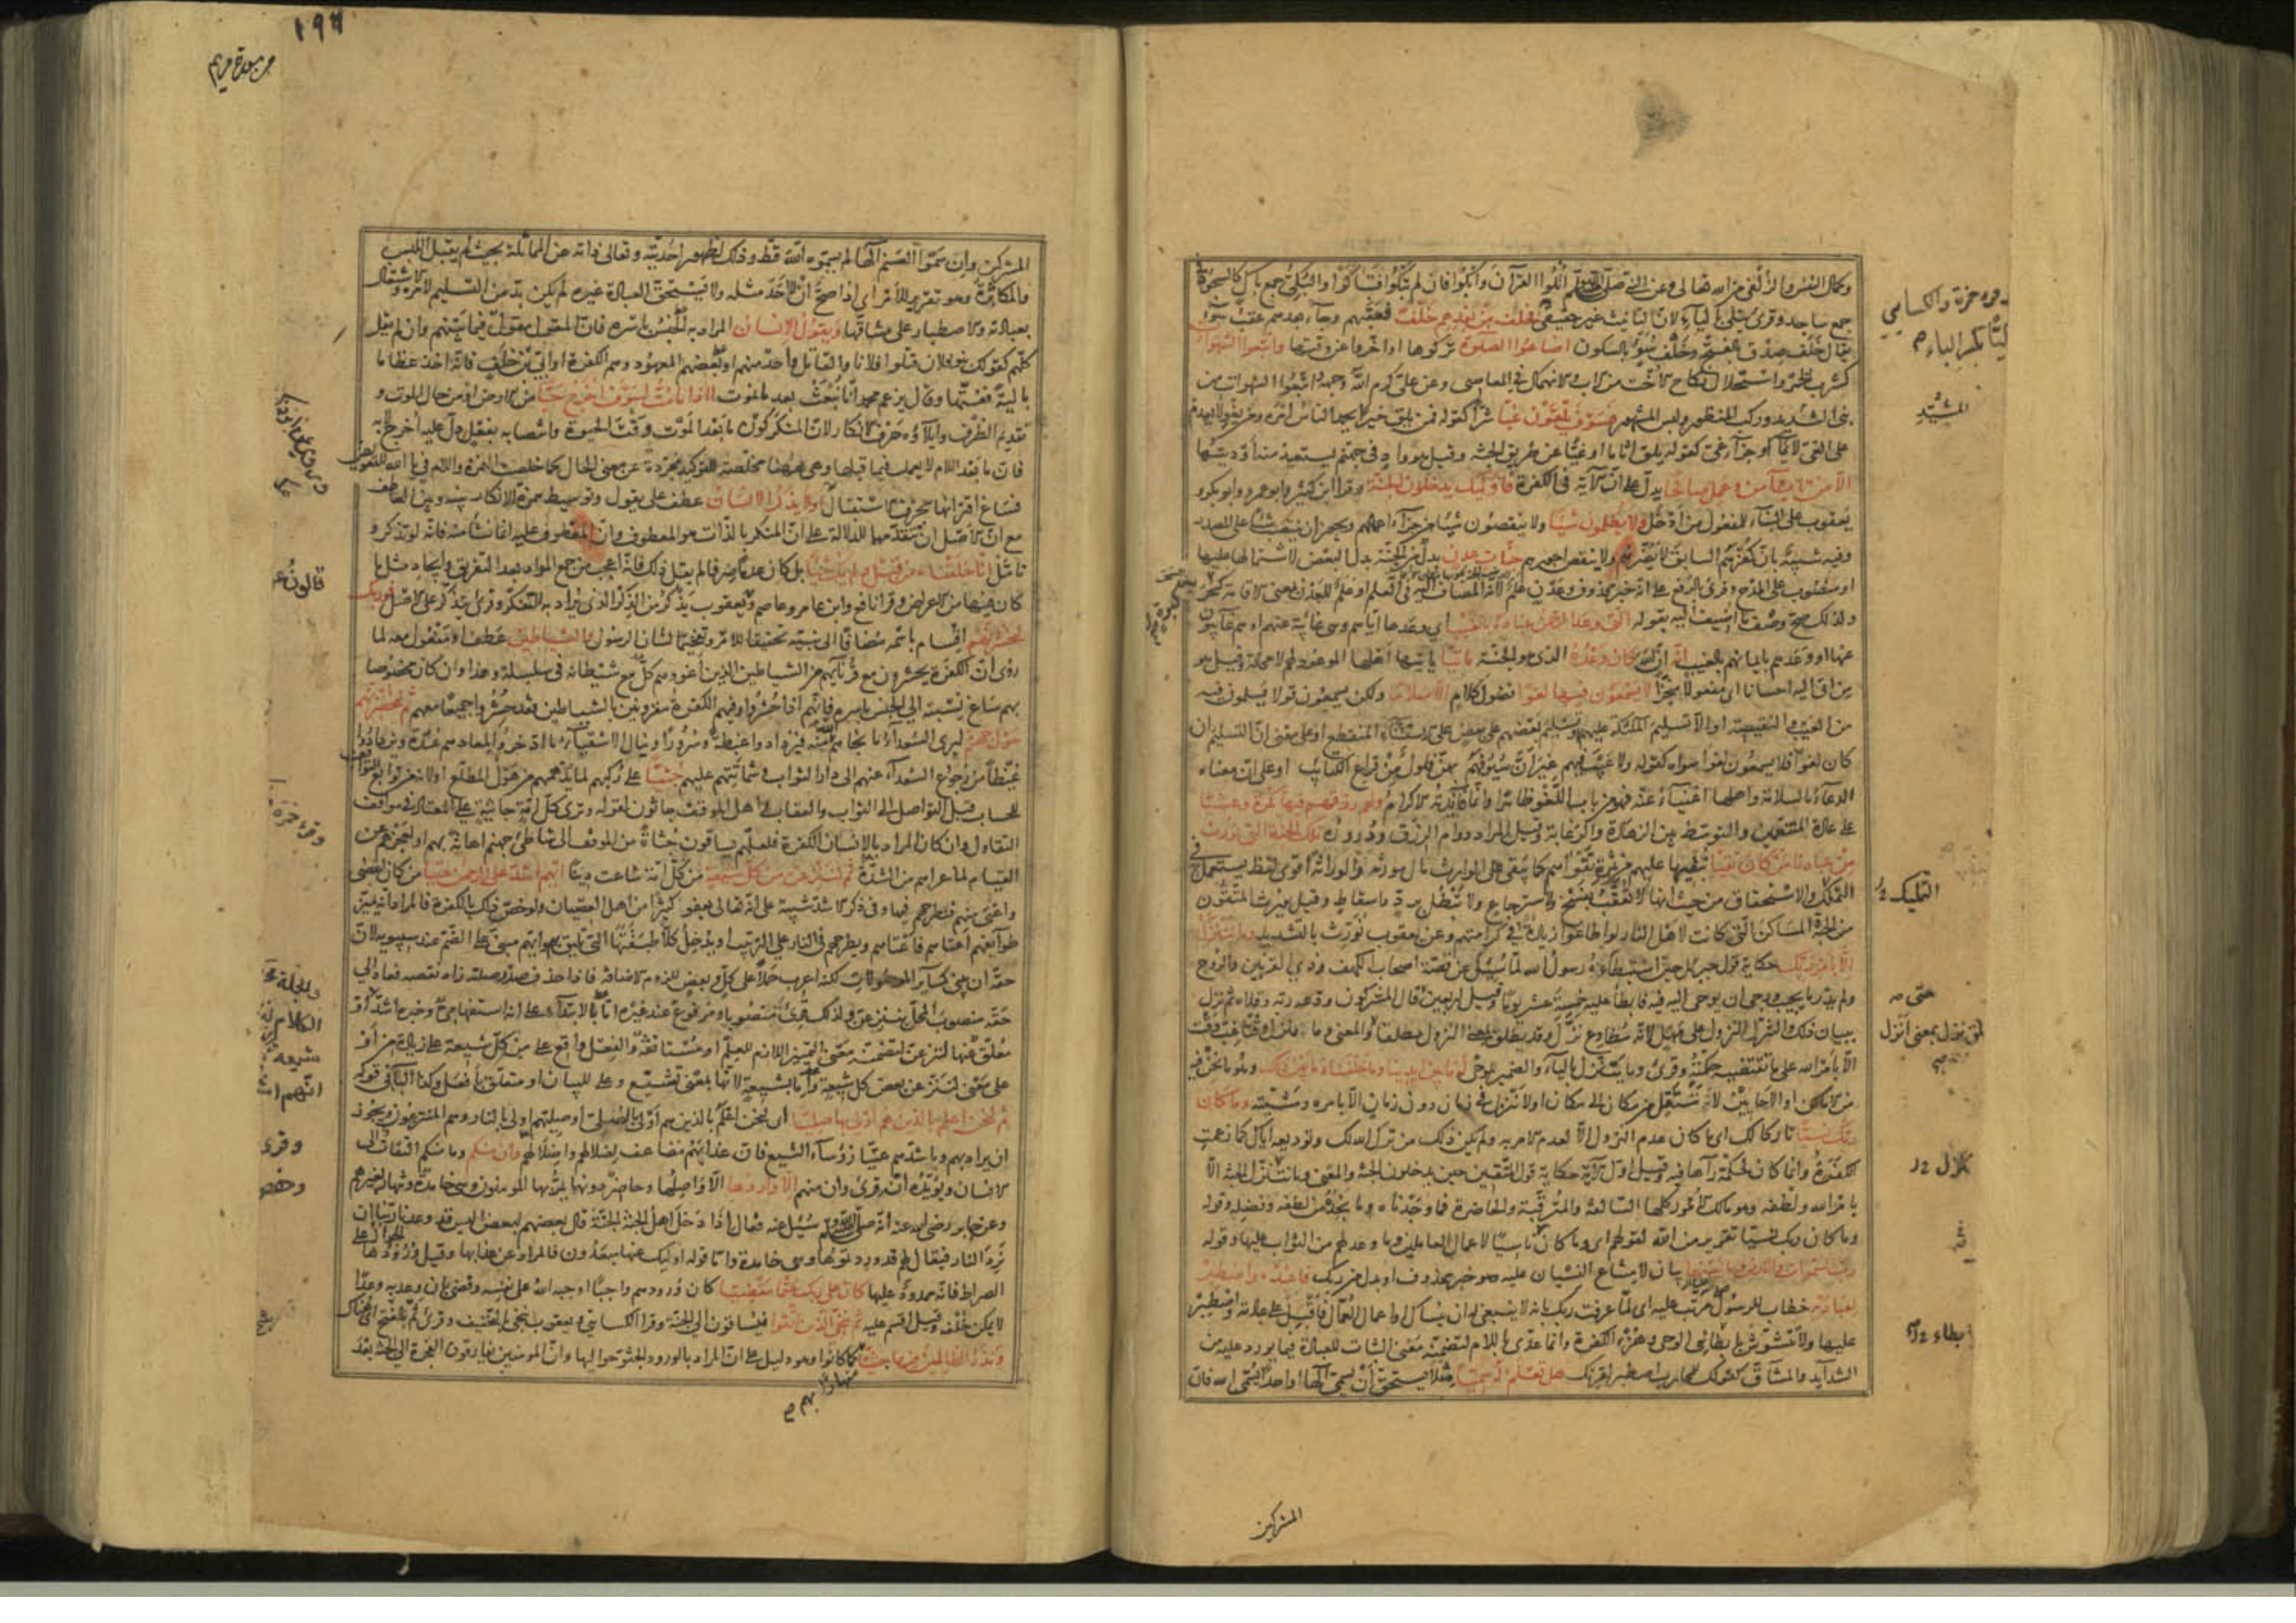 وكمال النفس والزلفى من الله تعالى وعن النبي صلى الله عليه وسلم اتلوا القرآن وابكوا فان لم تبكوا فتباكوا والبكي جمع باك كالسجود في
جمع ساجد وقرئ يتلى بالياء لان التانيث غير حقيقي فخلف من بعدهم خلف فعقبهم وجاء بعدهم عقب سوء
يقال خلف صدق بالفتح وخلف سوء بالسكون اضاعوا الصلوة تركوها او اخروها عن وقتها واتبعوا الشهوات
كشرب الخمر واستحلال نكاح الاخت من الاب والانهماك في المعاصي وعن علي كرم الله وجهه واتبعوا الشهوات من
بنى الشديد وركب المنظور ولبس المشهور فسوف يلقون غيا شرا كقوله فمن يلق خيرا يحمد الناس امره ومن يغو لا يعدم
على الغي لائما او جزاء غي كقوله يلق اثاما او غيا عن طريق الجنة وقيل هو واد في جهنم يستعيذ منه اوديتها
الا من تاب وآمن وعمل صالحا يدل على ان الآية في الكفرة فاولئك يدخلون الجنة وقرا ابن كثير وابو عمرو وابو بكر و
يعقوب على البناء للمفعول من ادخل ولا يظلمون شيئا ولا ينقصون شيئا من جزاء اعمالهم ويجوز ان ينتصب شيئا على المصدر
وفيه تنبيه بان كفرهم السابق لا يضرهم ولا ينقص اجورهم جنات عدن بدل من الجنة بدل البعض لاشتمالها عليها
او منصوب على المدح وقرئ بالرفع على انه خبر محذوف وعدن علم لانه المضاف اليه في العلم او علم للعدن بمعنى الاقامة كبرة
ولذلك صح وصف ما اضيف اليه بقوله التي وعد الرحمن عباده بالغيب اي وعدها اياهم وهي غائبة عنهم او هم غائبون
عنها او وعدهم بايمانهم بالغيب انه ان الله كان وعده الذي هو الجنة ماتيا ياتيها اهلها الموعود لهم لا محالة وقيل هو
من اتى اليه احسانا اي مفعولا منجزا لا يسمعون فيها لغوا فضول كلام الا سلاما ولكن يسمعون قولا يسلمون فيه
من العيب والنقيصة او الا تسليم الملئكة عليهم او تسليم بعضهم على بعض على الاستثناء المنقطع او على معنى ان التسليم ان
كان لغوا فلا يسمعون لغوا سواه كقوله ولا عيب فيهم غير ان سيوفهم بهن فلول من قراع الكتائب او على ان معناه
الدعاء بالسلامة واهلها اغنياء عنه فهو من باب اللغو ظاهرا وانما فائدته الاكرام ولهم رزقهم فيها بكرة وعشيا
على عادة المتنعمين والتوسط بين الزهادة والرغابة وقيل المراد دوام الرزق ودروره تلك الجنة التي نورث
من عبادنا من كان تقيا نبقيها عليهم من ثمرة تقواهم كما يبقى على الوارث مال مورثه والوراثة اقوى لفظ يستعمل في
التملك والاستحقاق من حيث انها لا تعقب بفسخ ولا استرجاع ولا تبطل برد ولا اسقاط وقيل يورث المتقون
من الجنة المساكن التي كانت لاهل النار لو اطاعوا زيادة في كرامتهم وعن يعقوب نورث بالتشديد وما نتنزل
الا بامر ربك حكاية قول جبرئيل حين استبطاه رسول الله لما سئل عن قصة اصحاب الكهف وذي القرنين والروح
ولم يدر ما يجيب ورجى ان يوحى اليه فيه فابطأ عليه خمسة عشر يوما وقيل اربعين حتى قال المشركون ودعه ربه وقلاه ثم نزل
ببيان ذلك والتنزل النزول على مهل لانه مطاوع نزل وقد يطلق بمعنى النزول مطلقا والمعنى وما ننزل وقتا غب وقت
الا بامر الله على ما تقتضيه حكمته وقرئ وما يتنزل بالياء والضمير للوحي له ما بين ايدينا وما خلفنا وما بين ذلك وهو ما نحن فيه
من الاماكن او الاحايين لا ننتقل من مكان الى مكان او لا ننزل في زمان دون زمان الا بامره ومشيته وما كان
ربك نسيا تاركا لك اي ما كان عدم النزول الا لعدم الامر به ولم يكن ذلك من ترك الله لك وتوديعه اياك كما زعمت
الكفرة وانما كان لحكمة رآها فيه وقيل اول الآية حكاية قول المتقين حين يدخلون الجنة والمعنى وما نتنزل الجنة الا
بامر الله ولطفه وهو مالك الامور كلها السالفة والمترقبة والحاضرة فما وجدناه وما نجده من لطفه وفضله وقوله
وما كان ربك نسيا تقرير من الله لقولهم اي وما كان ناسيا لاعمال العاملين وما وعد لهم من الثواب عليها وقوله
رب السموات والارض وما بينهما بيان لامتناع النسيان عليه وهو خبر محذوف او بدل من ربك فاعبده واصطبر
لعبادته خطاب للرسول مرتب عليه اي لما عرفت ربك بانه لا ينبغي له ان ينساك او اعمال العمال فاقبل على عبادته واصطبر
عليها ولا تتشوش بابطاء الوحي وهزء الكفرة وانما عدي باللام لتضمنه معنى الثبات للعبادة فيما يورد عليه من
الشدايد والمشاق كقولك للمحارب اصطبر لقرنك هل تعلم له سميا مثلا يستحق ان يسمى الها او احدا يسمى الله فان
قرء حمزة والكسائي
بكيا بكسر الباء
المشيد
التمليك
حتى
بمعنى انزل
المشركين
١٩٦
من سورة مريم
المشركين وان سموا الصنم الها لم يسموه الله قط وذلك لظهور احديته وتعالى ذاته عن المماثلة بحيث لم يقبل اللبس
والمكابرة وهو تقرير للامر اي اذا صح ان لا احد مثله ولا يستحق العبادة غيره لم يكن بد من التسليم لامره والاشتغال
بعبادته والاصطبار على مشاقها ويقول الانسان المراد به الجنس باسره فان المقول مقول فيما بينهم وان لم يقل
كلهم كقولك بنو فلان قتلوا فلانا والقاتل واحد منهم او بعضهم المعهود وهم الكفرة او ابي بن خلف فانه اخذ عظاما
بالية ففتتها وقال يزعم محمد انا نبعث بعد ما نموت ائذا ما مت لسوف اخرج حيا من الارض او من حال الموت و
تقديم الظرف وايلاؤه حرف الانكار لان المنكر كون ما بعد الموت وقت الحيوة وانتصابه بفعل دل عليه اخرج لا به
فان ما بعد اللام لا يعمل فيما قبلها وهي ههنا مخلصة للتوكيد مجردة عن معنى الحال كما خلصت الهمزة واللام في يا الله للتعويض
فساغ اقترانها بحرف الاستقبال اولا يذكر الانسان عطف على يقول وتوسيط همزة الانكار بينه وبين العاطف
مع ان الاصل ان يتقدمهما للدلالة على ان المنكر بالذات هو المعطوف وان المعطوف عليه انما نشأ منه فانه لو تذكر و
تامل انا خلقناه من قبل ولم يك شيئا بل كان عدما صرفا لم يقل ذلك فانه اعجب من جمع المواد بعد التفريق وايجاد مثل ما
كان فيها من الاعراض وقرا نافع وابن عامر وعاصم ويعقوب يذكر من الذكر الذي يراد به التفكر وقرئ يتذكر على الاصل فوربك
لنحشرنهم اقسام باسمه مضافا الى نبيه تحقيقا للامر وتفخيما لشان الرسول والشياطين عطف او مفعول معه لما
روي ان الكفرة يحشرون مع قرنائهم من الشياطين الذين اغووهم كل مع شيطانه في سلسلة وهذا وان كان مخصوصا
بهم ساغ نسبته الى الجنس باسره فانهم اذا حشروا وفيهم الكفرة مقرونين بالشياطين فقد حشروا جميعا معهم ثم لنحضرنهم
حول جهنم ليرى السعداء ما نجاهم الله منه فيزدادوا غبطة وسرورا وينال الاشقياء ما ادخروا لمعادهم عدة ويزدادوا
غيظا من رجوع السعداء عنهم الى دار الثواب وشماتتهم عليهم جثيا على ركبهم لما يدهمهم من هول المطلع او لانه من توابع التواقف
للحساب قبل التواصل الى الثواب والعقاب واهل الموقف جاثون لقوله وترى كل امة جاثية على المعتاد في مواقف
التقاول وان كان المراد بالانسان الكفرة فلعلهم يساقون جثاة من الموقف الى شاطئ جهنم اهانة بهم او لعجزهم عن
القيام لما عراهم من الشدة ثم لننزعن من كل شيعة من كل امة شاعت دينا ايهم اشد على الرحمن عتيا من كان اعصى
واعتى منهم فنطرحهم فيها وفي ذكر الاشد تنبيه على انه تعالى يعفو كثيرا من اهل العصيان ولو خص ذلك بالكفرة فالمراد انه يميز
طوائفهم اعتاهم فاعتاهم ويطرحهم في النار على الترتيب او يدخل كلا طبقتها التي تليق بهم وايهم مبني على الضم عند سيبويه لان
حقه ان يبنى كسائر الموصولات لكنه اعرب حملا على كل وبعض للزوم الاضافة فاذا حذف صدر صلته زاد نقصه فعاد الى
حقه منصوب المحل بننزعن ولذلك قرئ منصوبا ومرفوع عند غيره اما بالابتداء على انه استفهامي وخبره اشد
معلق عنها لننزعن لتضمنه معنى التمييز اللازم للعلم او مستانفة والفعل واقع على من كل شيعة على زيادة من او
على معنى لننزعن بعض كل شيعة واما بشيعة لانها بمعنى تشيع وعلى للبيان او متعلق بافعل وكذا الباء في قوله
ثم لنحن اعلم بالذين هم اولى بها صليا اي لنحن اعلم بالذين هم اولى بالصلي او صليهم اولى بالنار وهم المنتزعون ويجوز
ان يراد بهم وباشدهم عتيا رؤساء الشيع فان عذابهم مضاعف لضلالهم واضلالهم وان منكم وما منكم التفات الى
الانسان ويؤيده انه قرئ وان منهم الا واردها الا واصلها وحاضر دونها يمر بها المومنون وهي خامدة وتنهار بغيرهم
وعن جابر رضي الله عنه انه صلى الله عليه وسلم سئل عنه فقال اذا دخل اهل الجنة الجنة قال بعضهم لبعض اليس قد وعدنا ربنا ان
نرد النار فيقال لهم قد وردتموها وهي خامدة واما قوله اولئك عنها مبعدون فالمراد عن عذابها وقيل ورودها الجواز على
الصراط فانه ممدود عليها كان على ربك حتما مقضيا كان ورودهم واجبا اوجبه الله على نفسه وقضى بان وعد به وعدا
لا يمكن خلفه وقيل اقسم عليه ثم ننجي الذين اتقوا فيساقون الى الجنة وقرا الكسائي ويعقوب ننجي بالتخفيف وقرئ ثم بالفتح اي هناك
ونذر الظالمين فيها جثيا كما كانوا وهو دليل على ان المراد بالورود الجثو حواليها وان المومنين يفارقون الفجرة الى الجنة بعد
قالون عن
والجملة
الكلام
شيعة
انهم اشد
وقرئ
منهارا بهم